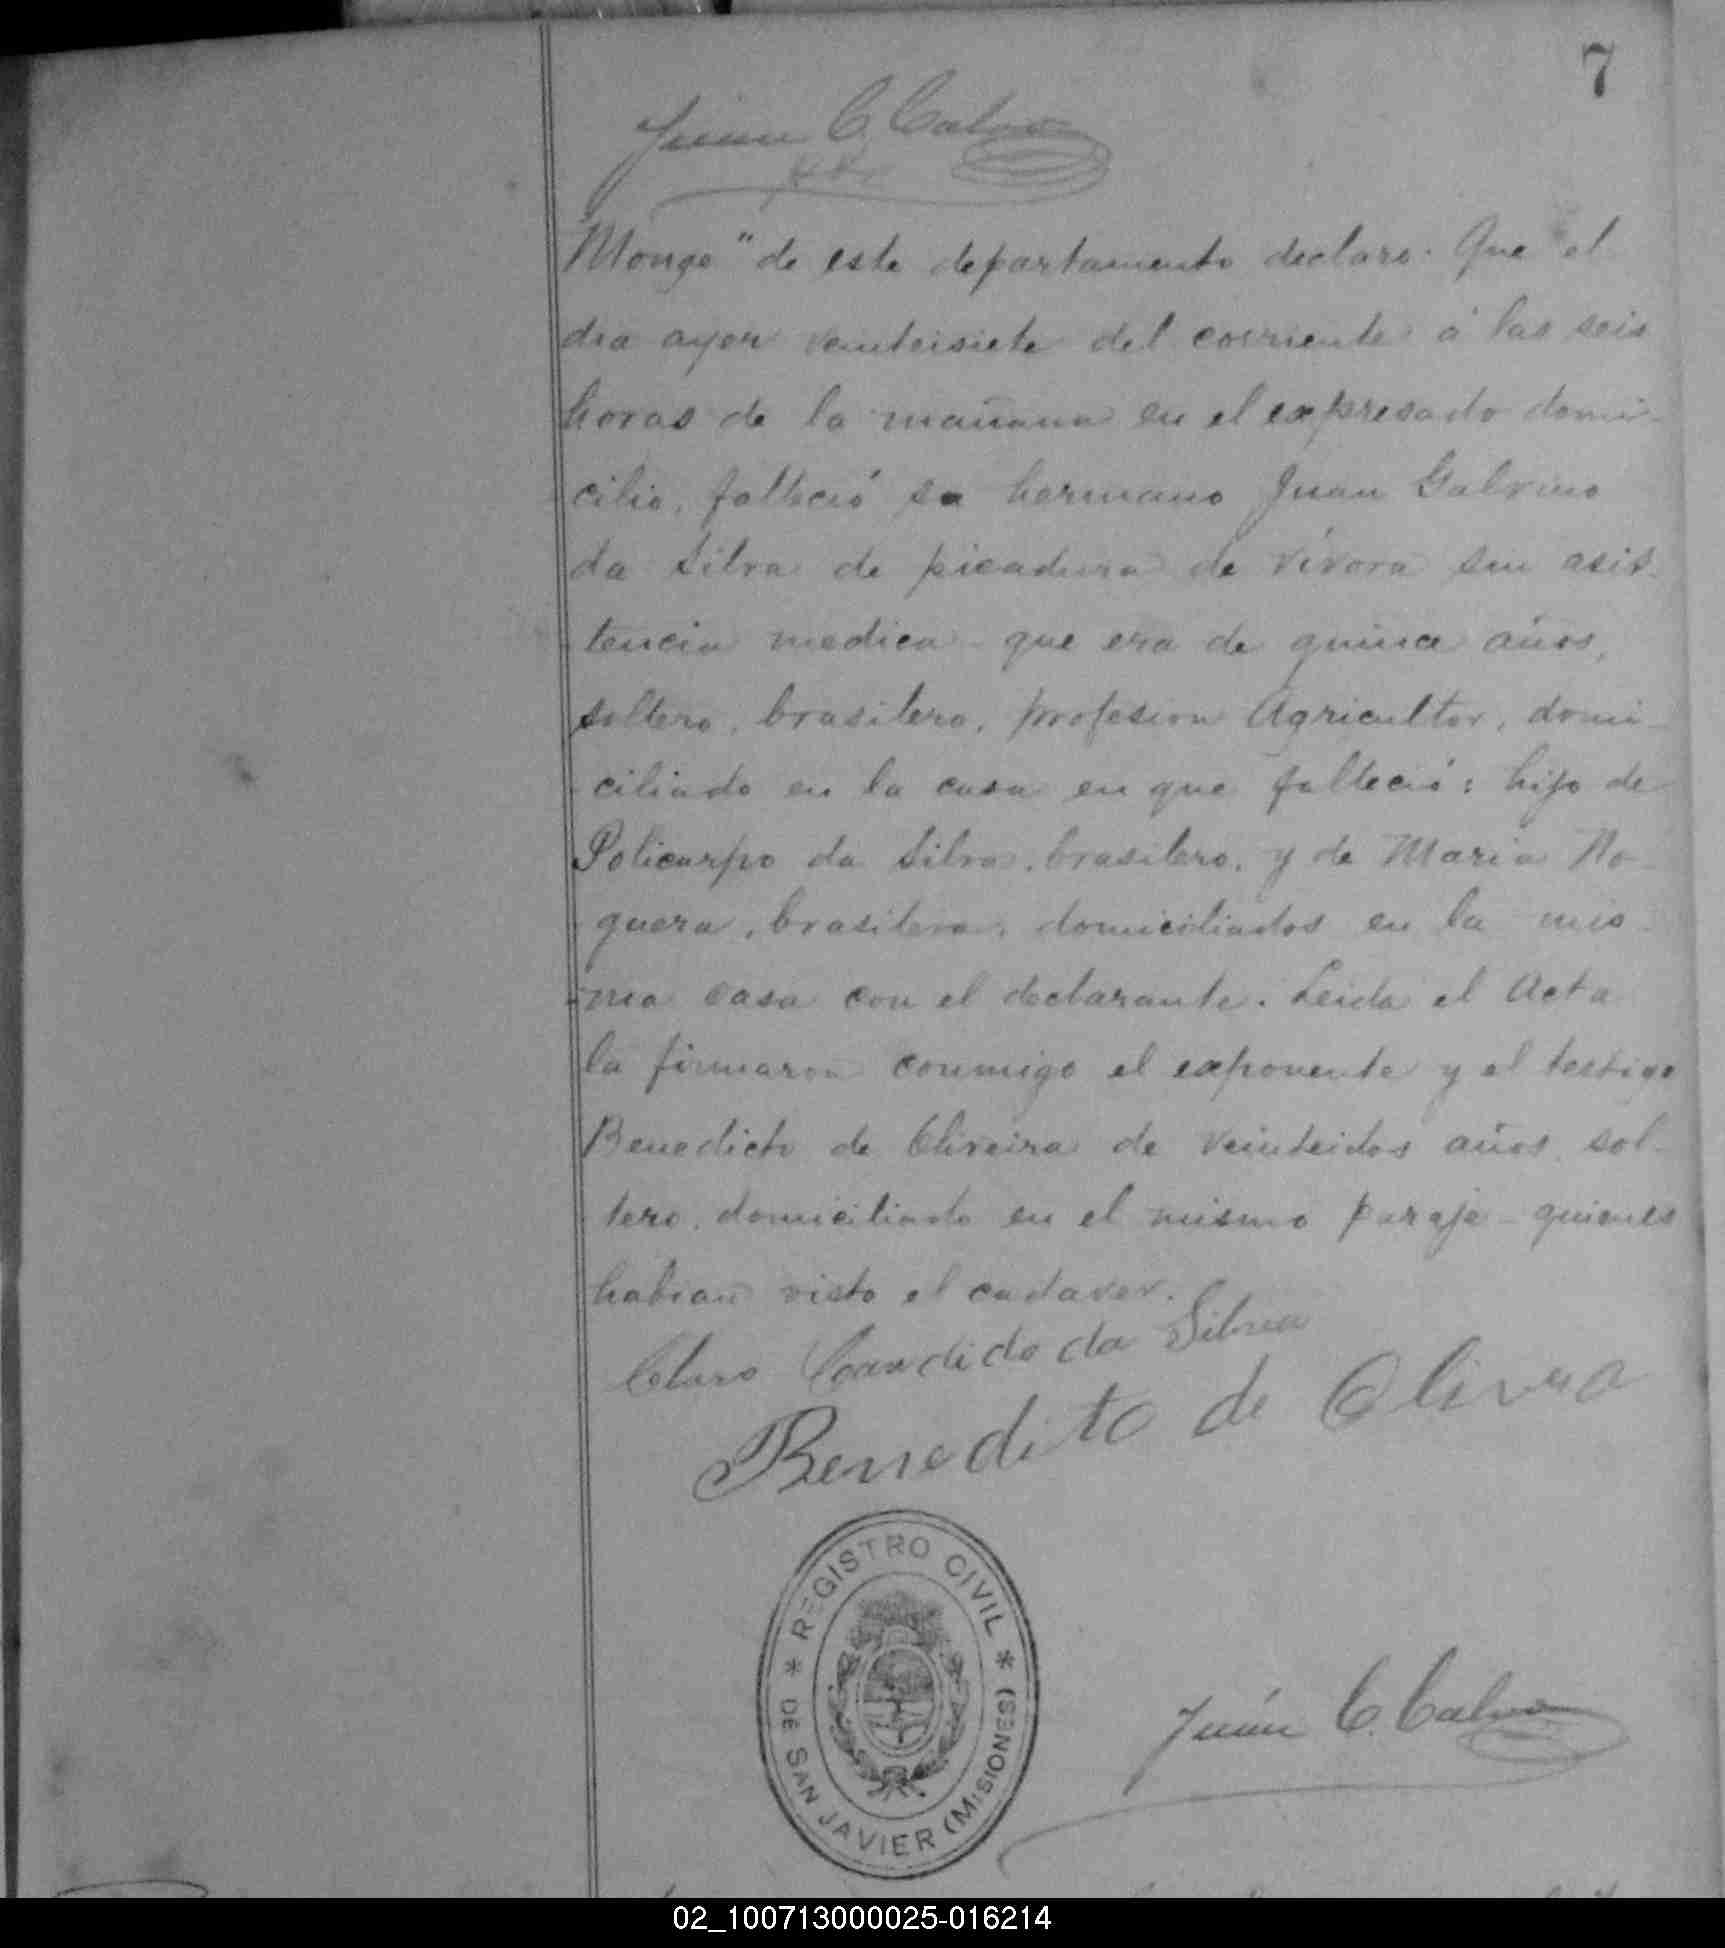 7
Juan C. Calvo
Monge" de este departamento declaro. Que el
dia ayer veinteisiete del corriente á las seis
horas de la mañana en el expresado domi-
cilio, falleció su hermano Juan Galvino
da Silva de picadura de vívora sin asis-
tencia medica - que era de quince años,
soltero, brasilero, profesion Agricultor, domi-
ciliado en la casa en que falleció: hijo de
Policarpo da Silva, brasilero, y de Maria No-
guera, brasilera, domiciliados en la mis-
ma casa con el declarante. Leida el Acta
la firmaron conmigo el exponente y el testigo
Benedicto de Oliveira de veinteidos años, sol-
tero, domiciliado en el mismo paraje - quienes
habian visto el cadaver.
Claro Candido da Silva
Benedito de Olivra
* REGISTRO CIVIL *
DE SAN JAVIER (MISIONES)
Juan C. Calvo
02_100713000025-016214